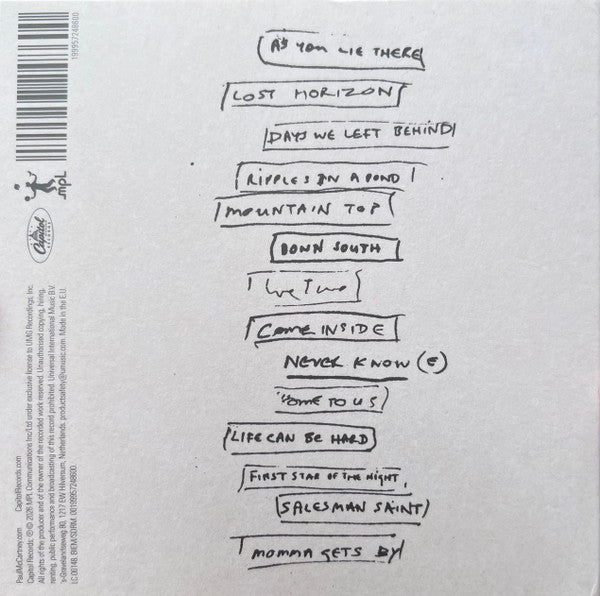 AS YOU LIE THERE
LOST HORIZON
DAYS WE LEFT BEHIND
RIPPLES IN A POND
MOUNTAIN TOP
DOWN SOUTH
We Two
Come INSIDE
NEVER KNOW (E)
HOME TO US
LIFE CAN BE HARD
FIRST STAR OF THE NIGHT
SALESMAN SAINT
MOMMA GETS BY
199957248600
MPL
Capitol
RECORDS
PaulMcCartney.com CapitolRecords.com
Capitol Records; ℗ © 2026 MPL Communications Inc/Ltd under exclusive license to UMG Recordings, Inc.
All rights of the producer and of the owner of the recorded work reserved. Unauthorised copying, hiring,
renting, public performance and broadcasting of this record prohibited. Universal International Music B.V.
's-Gravelandseweg 80, 1217 EW Hilversum, Netherlands. productsafety@umusic.com. Made in the E.U.
LC 00148. BIEM/SDRM. 00199957248600.